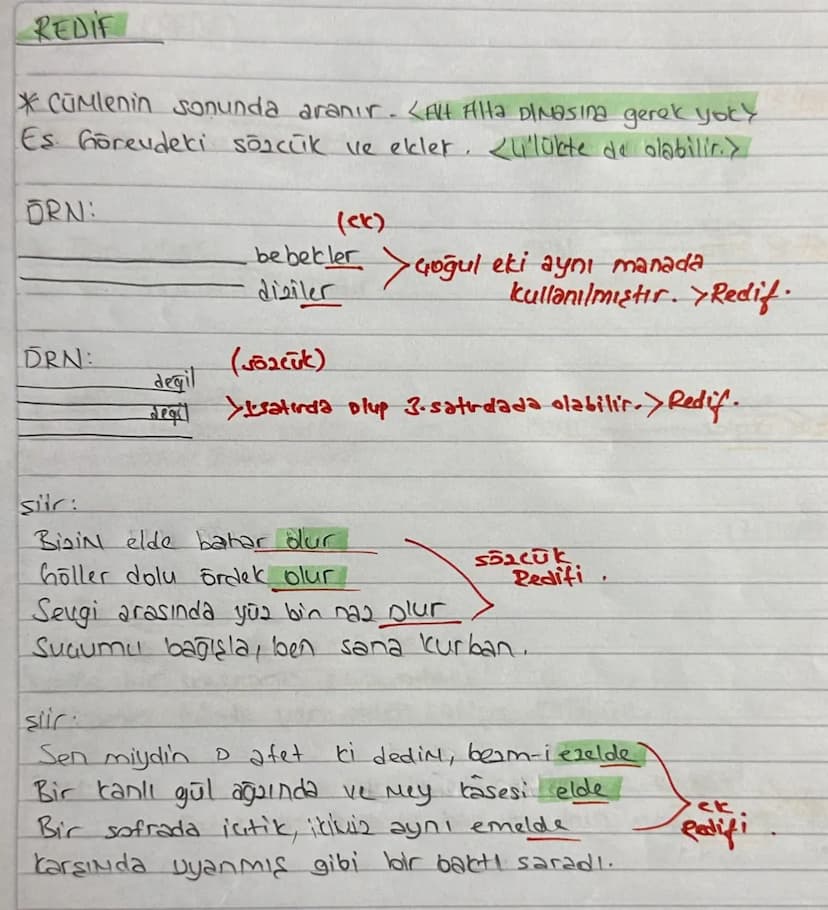 REDİF
* CÜMlenin sonunda aranır. <Alt Alta OlMASINA gerek yok>
Eş Görevdeki sözcük ve ekler. <Ü'lükte de olabilir.>
ÖRN:
(ek)
bebekler
diziler
>çoğul eki aynı manada
kullanılmıştır. >Redif.
ÖRN:
(sözcük)
değil
değil
>1.satırda olup 3.satırdada olabilir.>Redif.
şiir:
BiziM elde bahar olur
Göller dolu ördek olur
Sevgi arasında yüz bin naz olur
Suçumu bağışla, ben sana kurban.
sözcük
Redifi.
şiir:
Sen miydin o afet ki dediM, bezm-i ezelde
Bir kanlı gül ağzında ve Mey kâsesi elde
Bir sofrada içtik, ikimiz aynı emelde
Karşımda uyanmış gibi bir baktı sarardı.
ek
Redifi.